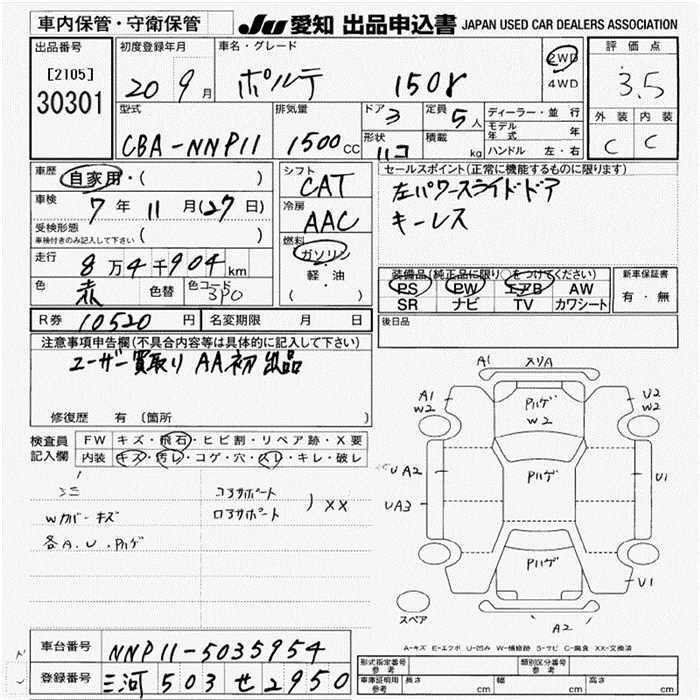 車内保管・守衛保管
JU 愛知 出品申込書 JAPAN USED CAR DEALERS ASSOCIATION
出品番号 [2105] 30301
初度登録年月 20 9月
車名・グレード ポルテ 150r
2WD 4WD
評価点 3.5
外装 内装
C C
型式 CBA-NNP11
排気量 1500cc
ドア 3
定員 5人
形状 ハコ
積載 kg
ディーラー・並行
モデル年式 年
ハンドル 左・右
車歴 自家用・( )
車検 7年11月(27日)
受検形態 車検付きのみ記入して下さい ( )
走行 8万4千904km
色 赤 色替 色コード 3P0
シフト CAT
冷房 AAC
燃料 ガソリン・軽・油 ( )
セールスポイント(正常に機能するものに限ります)
左パワースライドドア
キーレス
装備品(純正品に限り○をつけてください)
PS PW エアB AW
SR ナビ TV カワシート
新車保証書 有・無
R券 10520円 名変期限 月 日
後日品
注意事項申告欄(不具合内容等は具体的に記入して下さい)
ユーザー買取り AA初出品
修復歴 有 (箇所 )
検査員記入欄
FW キズ・飛石・ヒビ割・リペア跡・X要
内装 キズ・汚レ・コゲ・穴・スレ・キレ・破レ
Wカバーキズ
各A.U.Pハゲ
コアサポート
ロアサポート
) XX
A1 スリA
A1 W2
Pハゲ W2
U2 W2
UA2
Pハゲ
U1
UA3
Pハゲ
U1
スペア
A2
A-キズ E-エクボ U-凹み W-補修跡 S-サビ C-腐食 XX-交換済
車台番号 NNP11-5035954
登録番号 三河 503 せ 2950
形式指定番号 参考 類別区分番号 参考
車庫証明用 参考 長さ cm 幅 cm 高さ cm